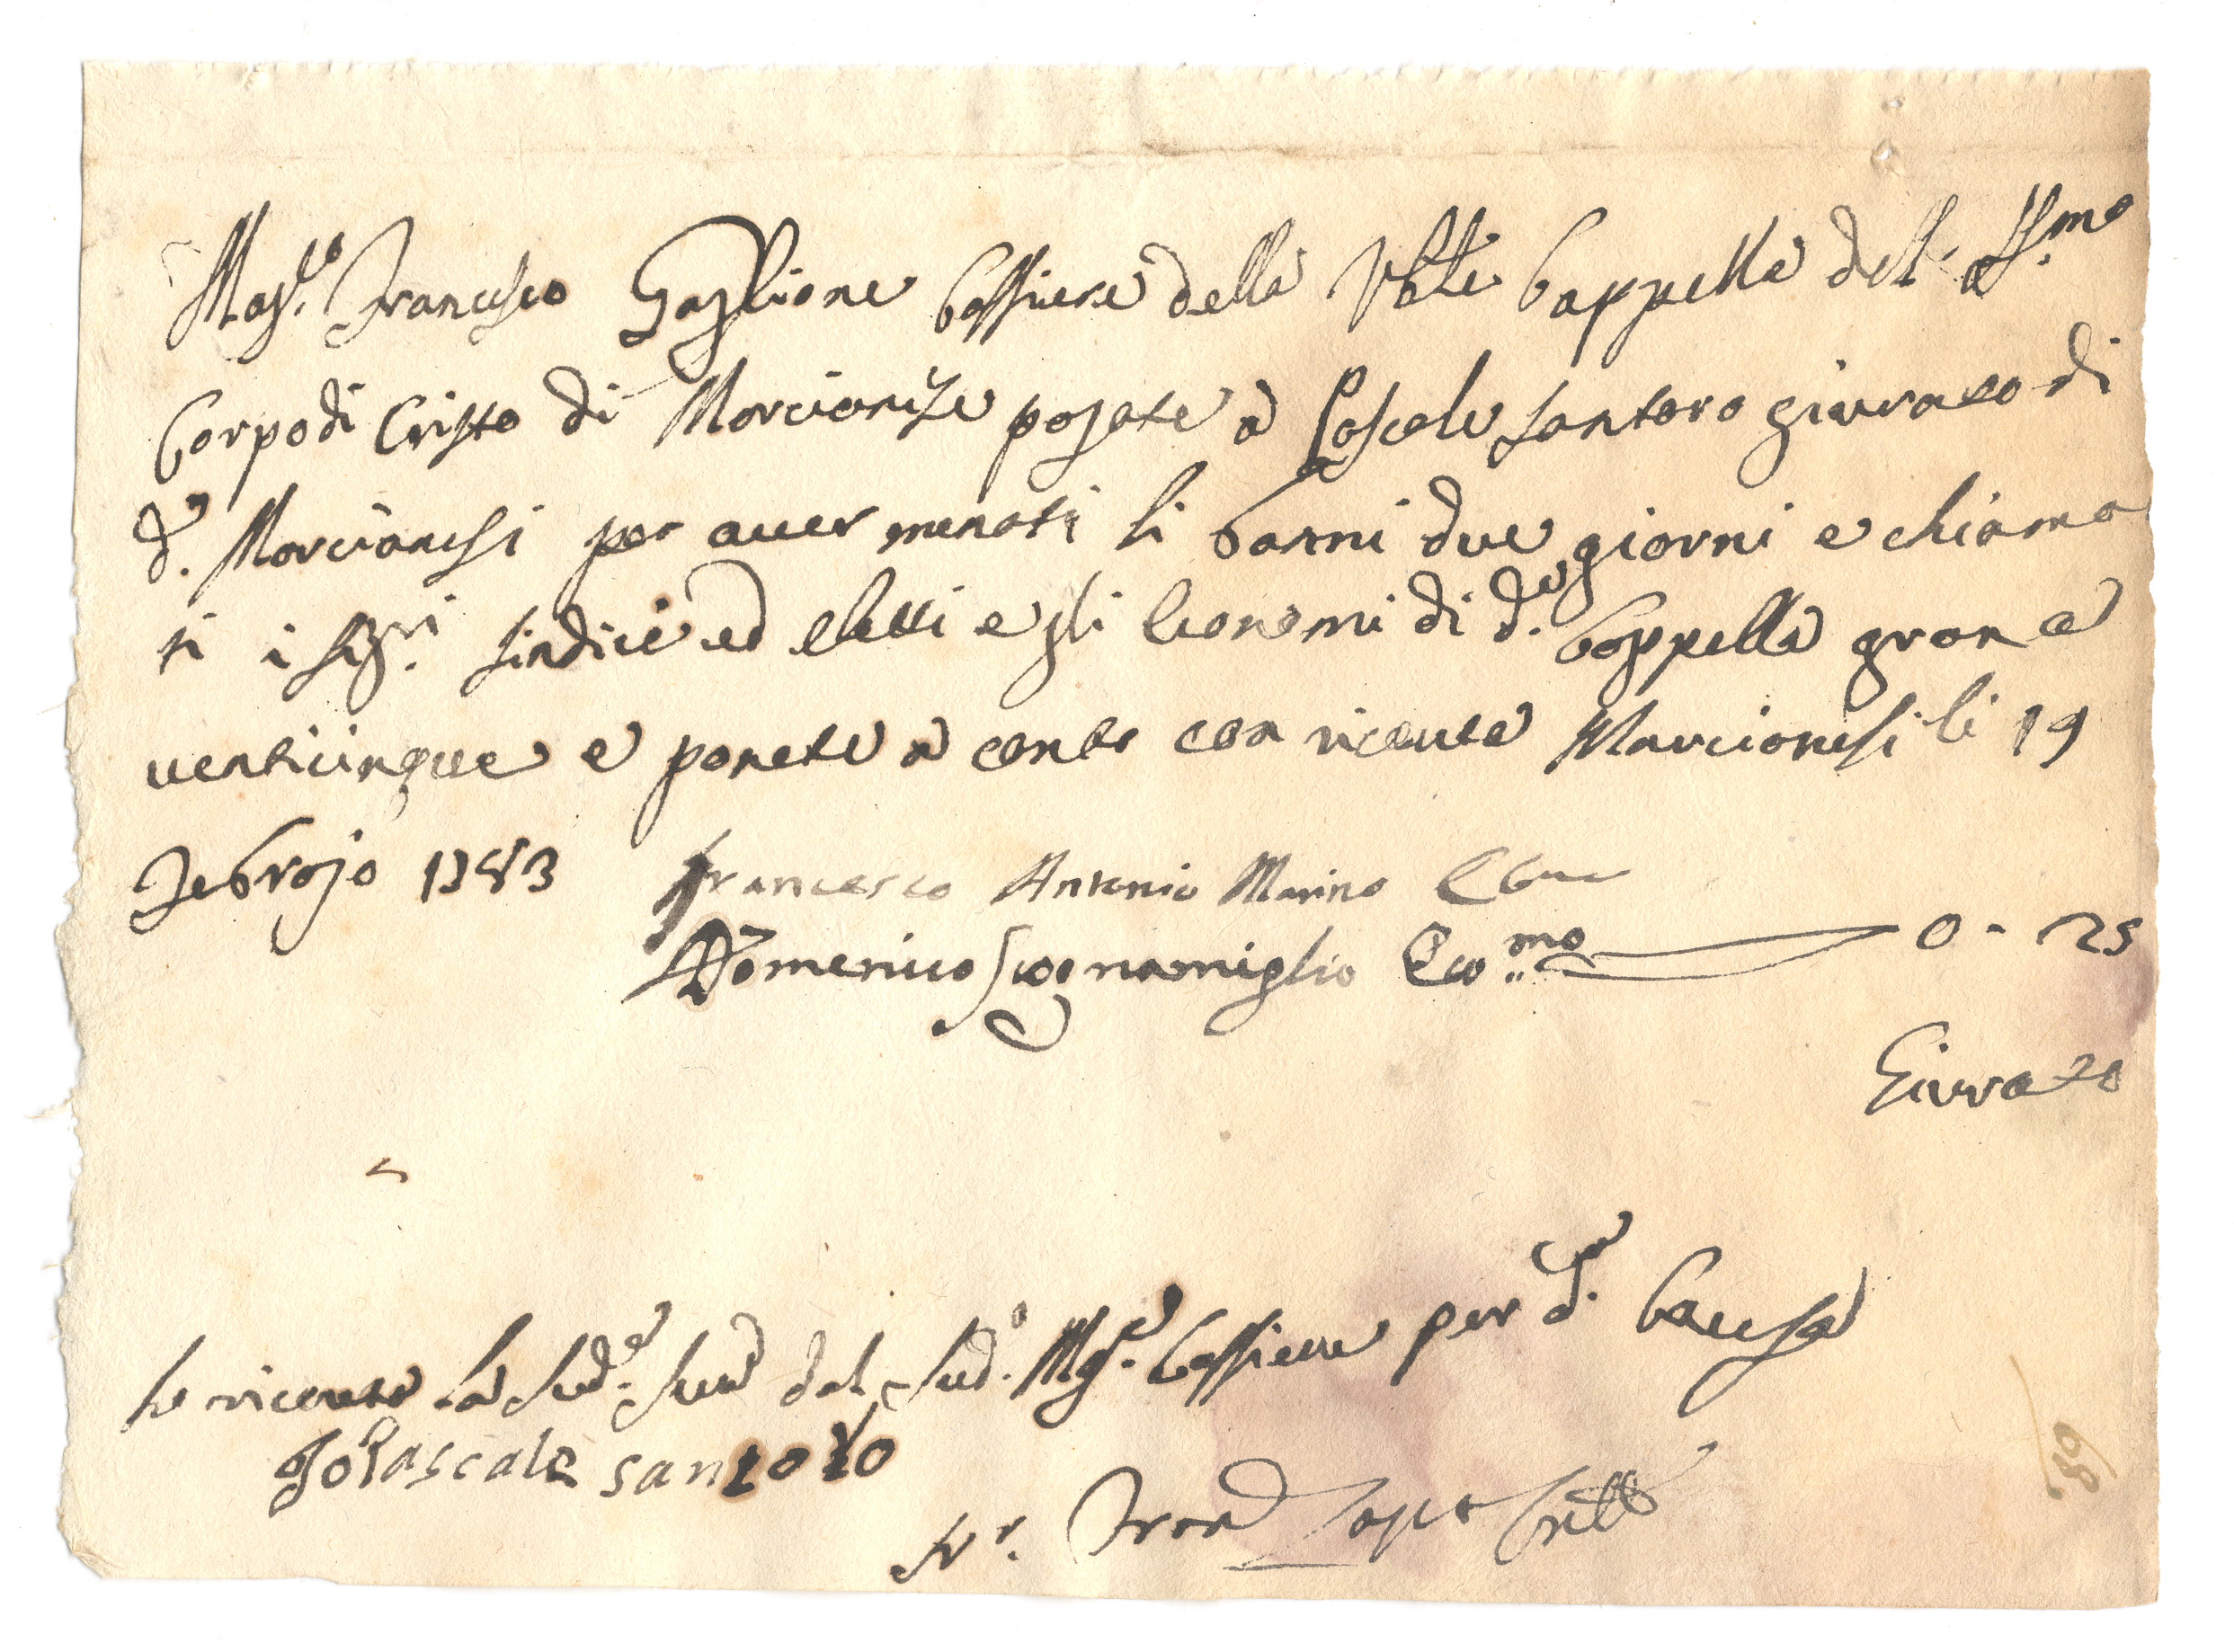 Mag.co Francesco Gaglione Cassiere della Ven.le Cappella del SS.mo
Corpo di Cristo di Morcionise pagate à Pascale Santoro giurato di
d.o Morcianisi per auer menati li banni due giorni e chiama
ti i Sig.ri Sindici ed eletti e gli Economi di d.a Cappella grana
venticinque e ponete à conto con riceuta Marcionisi li 19
Febrajo 1783
Francesco Antonio Marino
Domenico Scognamiglio Eco:mo 0 - 25
Giurato
Ho riceuuto la sud.a sum.a dal sud.o Mag.co Cassiere per d.a Causa
Io Pascale santoro
89